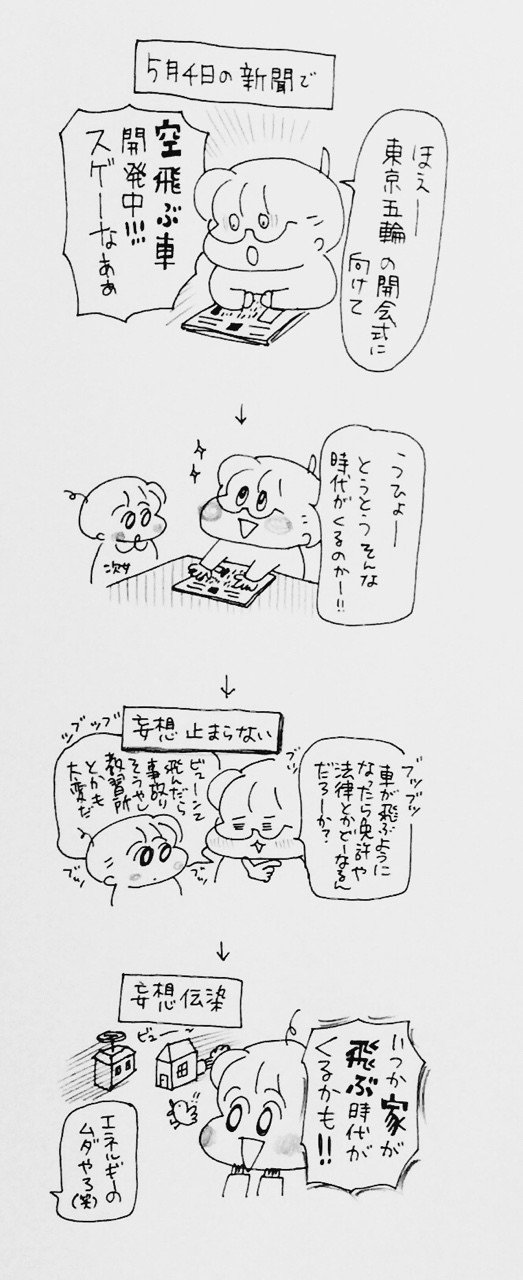 5月4日の新聞で
ほえー
東京五輪の開会式に
向けて
空飛ぶ車
開発中!!!
スゲーなぁぁ
うひょー
とうとうそんな
時代がくるのかー!!
次女
妄想止まらない
ブツブツ
ブツ
車が飛ぶように
なったら免許や
法律とかどーなるん
だろーか?
ブツブツブツ
ビューンて
飛んだら
事故り
そうやし
教習所
とかも
大変だ
ブツ
妄想伝染
いつか家が
飛ぶ時代が
くるかも!!
ビュー〜
エネルギーの
ムダやろ(笑)